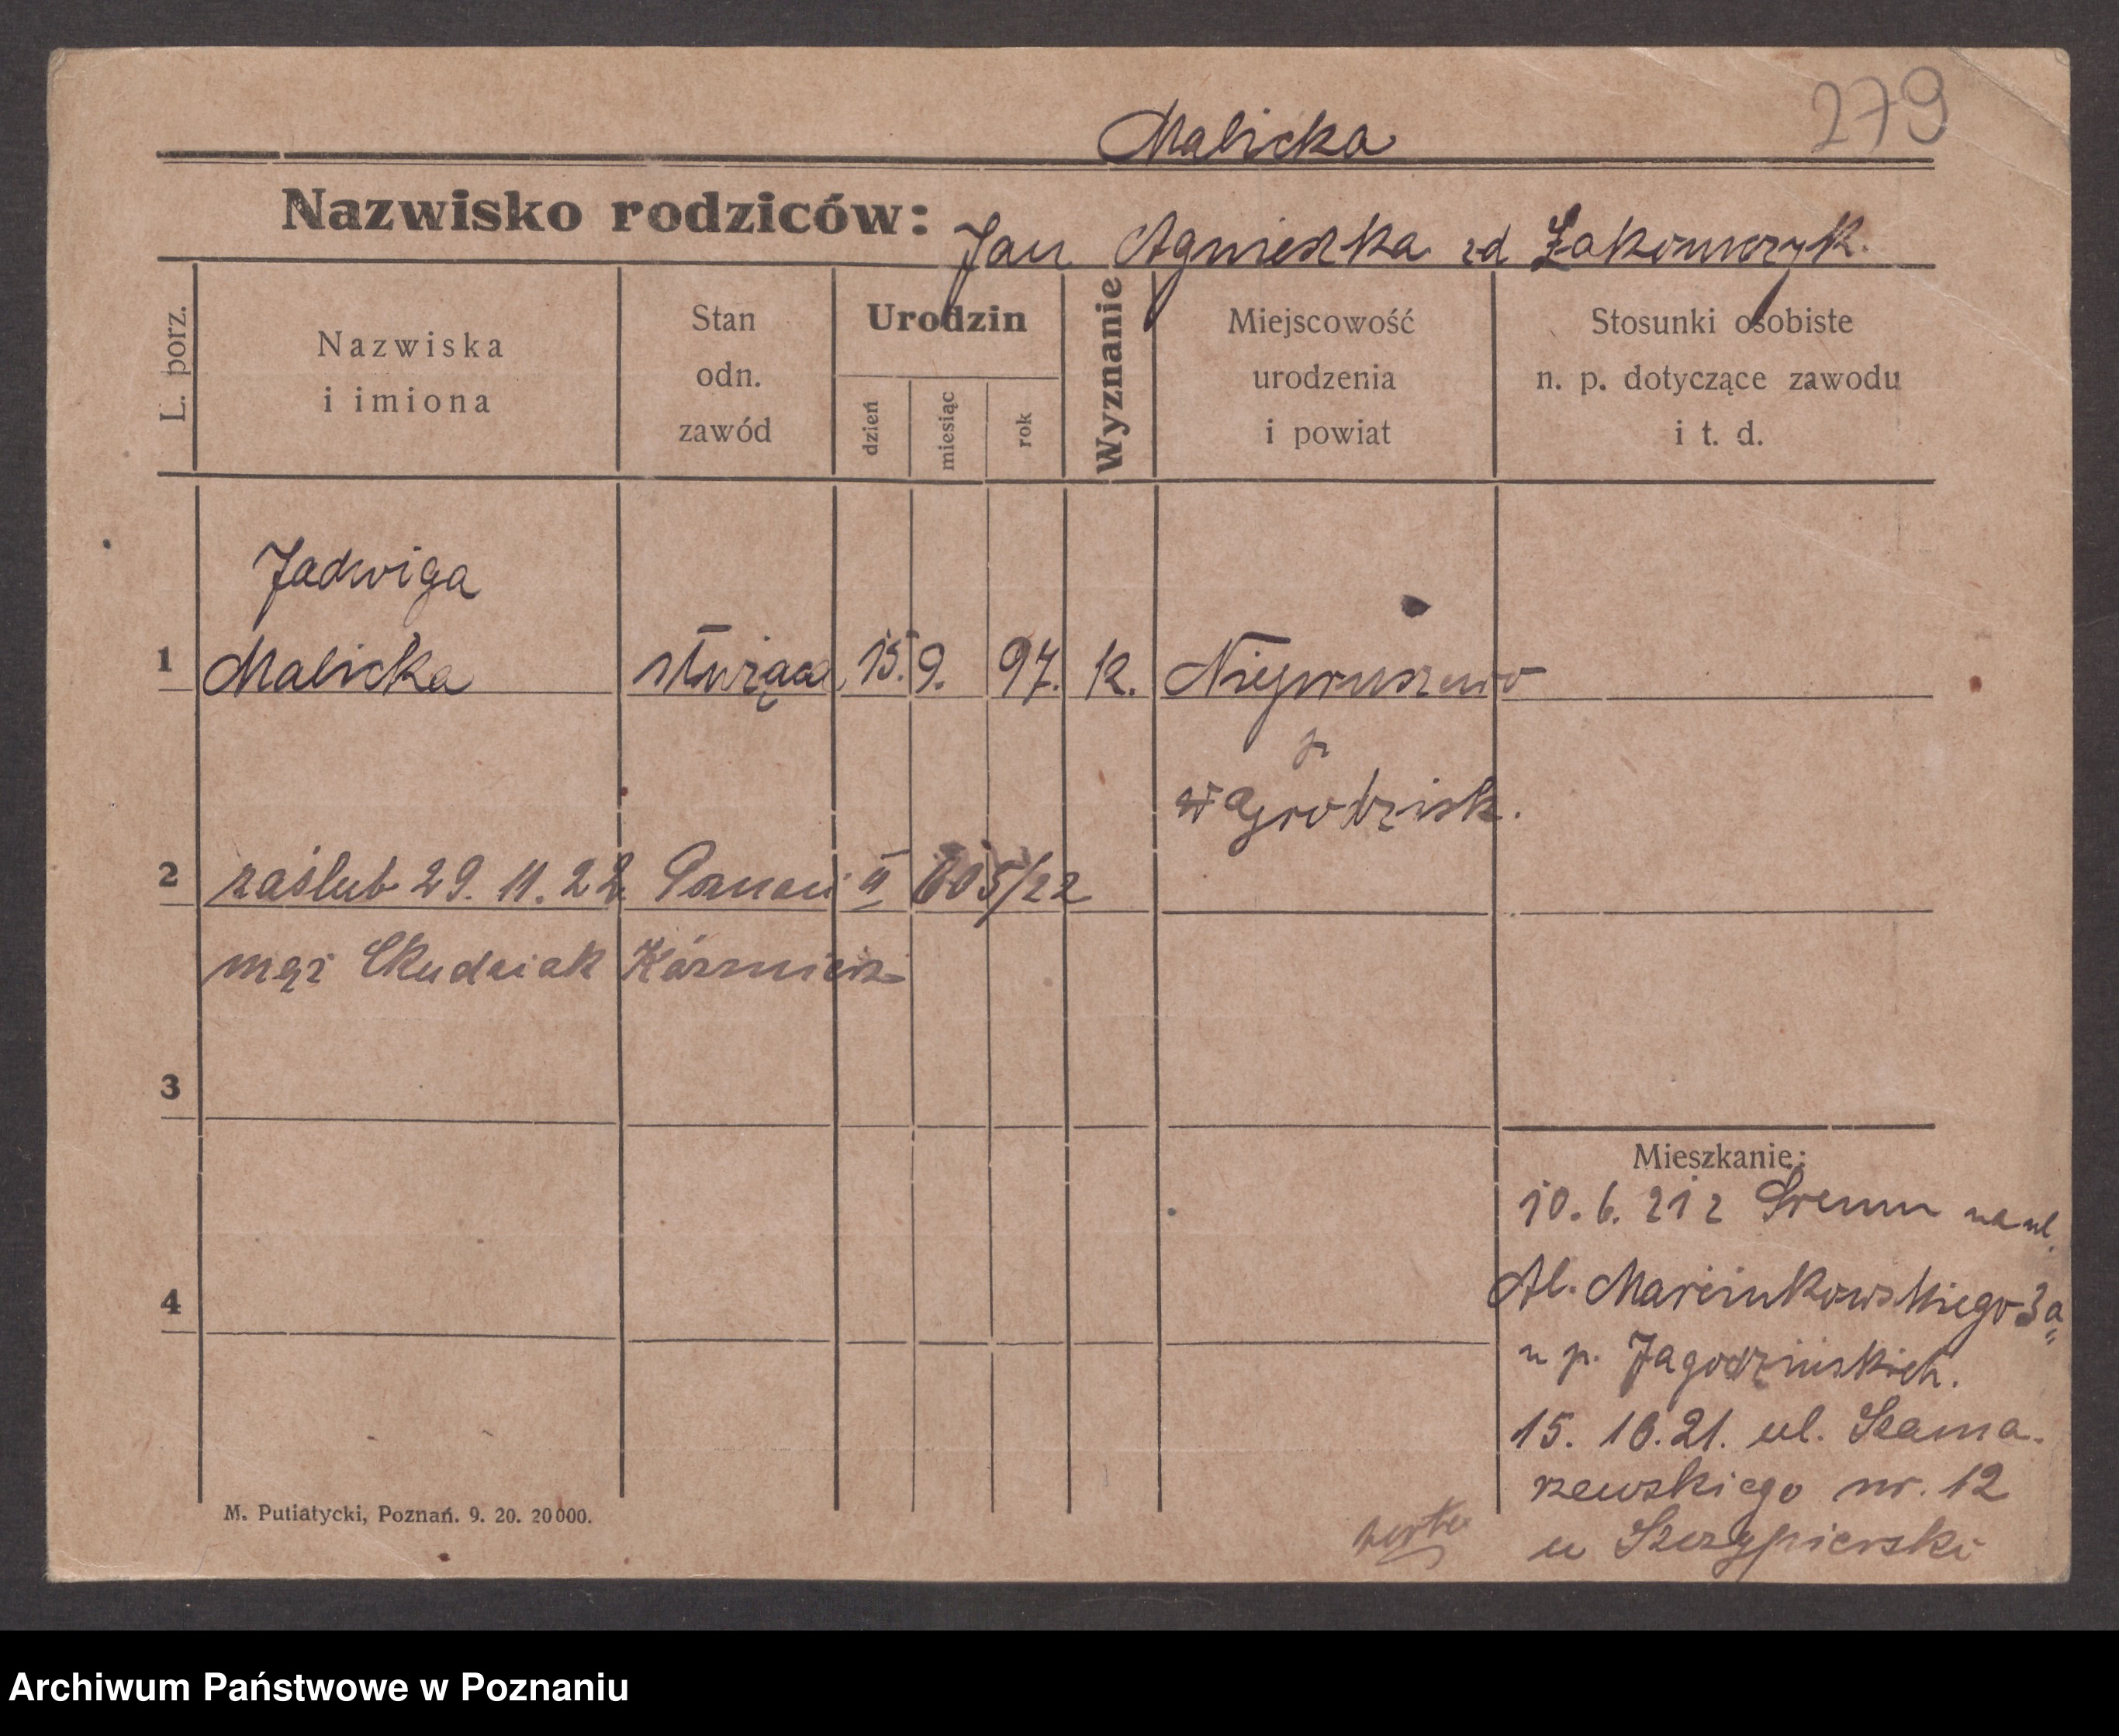 279
Malicka
Nazwisko rodziców: Jan Agnieszka zd
L. porz.
Nazwiska i imiona
Stan odn. zawód
Urodzin
dzień
miesiąc
rok
Wyznanie
Miejscowość urodzenia i powiat
Stosunki osobiste n. p. dotyczące zawodu i t. d.
Jadwiga
1 Malicka służąca 15. 9. 97. k. Niegruszewo
p
Grodzisk.
2 zaślub 29. 11. 22 Poznań II 605/22
mąż Skudziak Kaźmierz
3
Mieszkanie:
10. 6. 21 z Śremu na ul.
4
Al. Marcinkowskiego 3a
u p. Jagodzińskich.
15. 10. 21. ul. Szama-
rzewskiego nr. 12
u Szczypierski
M. Putiatycki, Poznań. 9. 20. 20000.
Archiwum Państwowe w Poznaniu